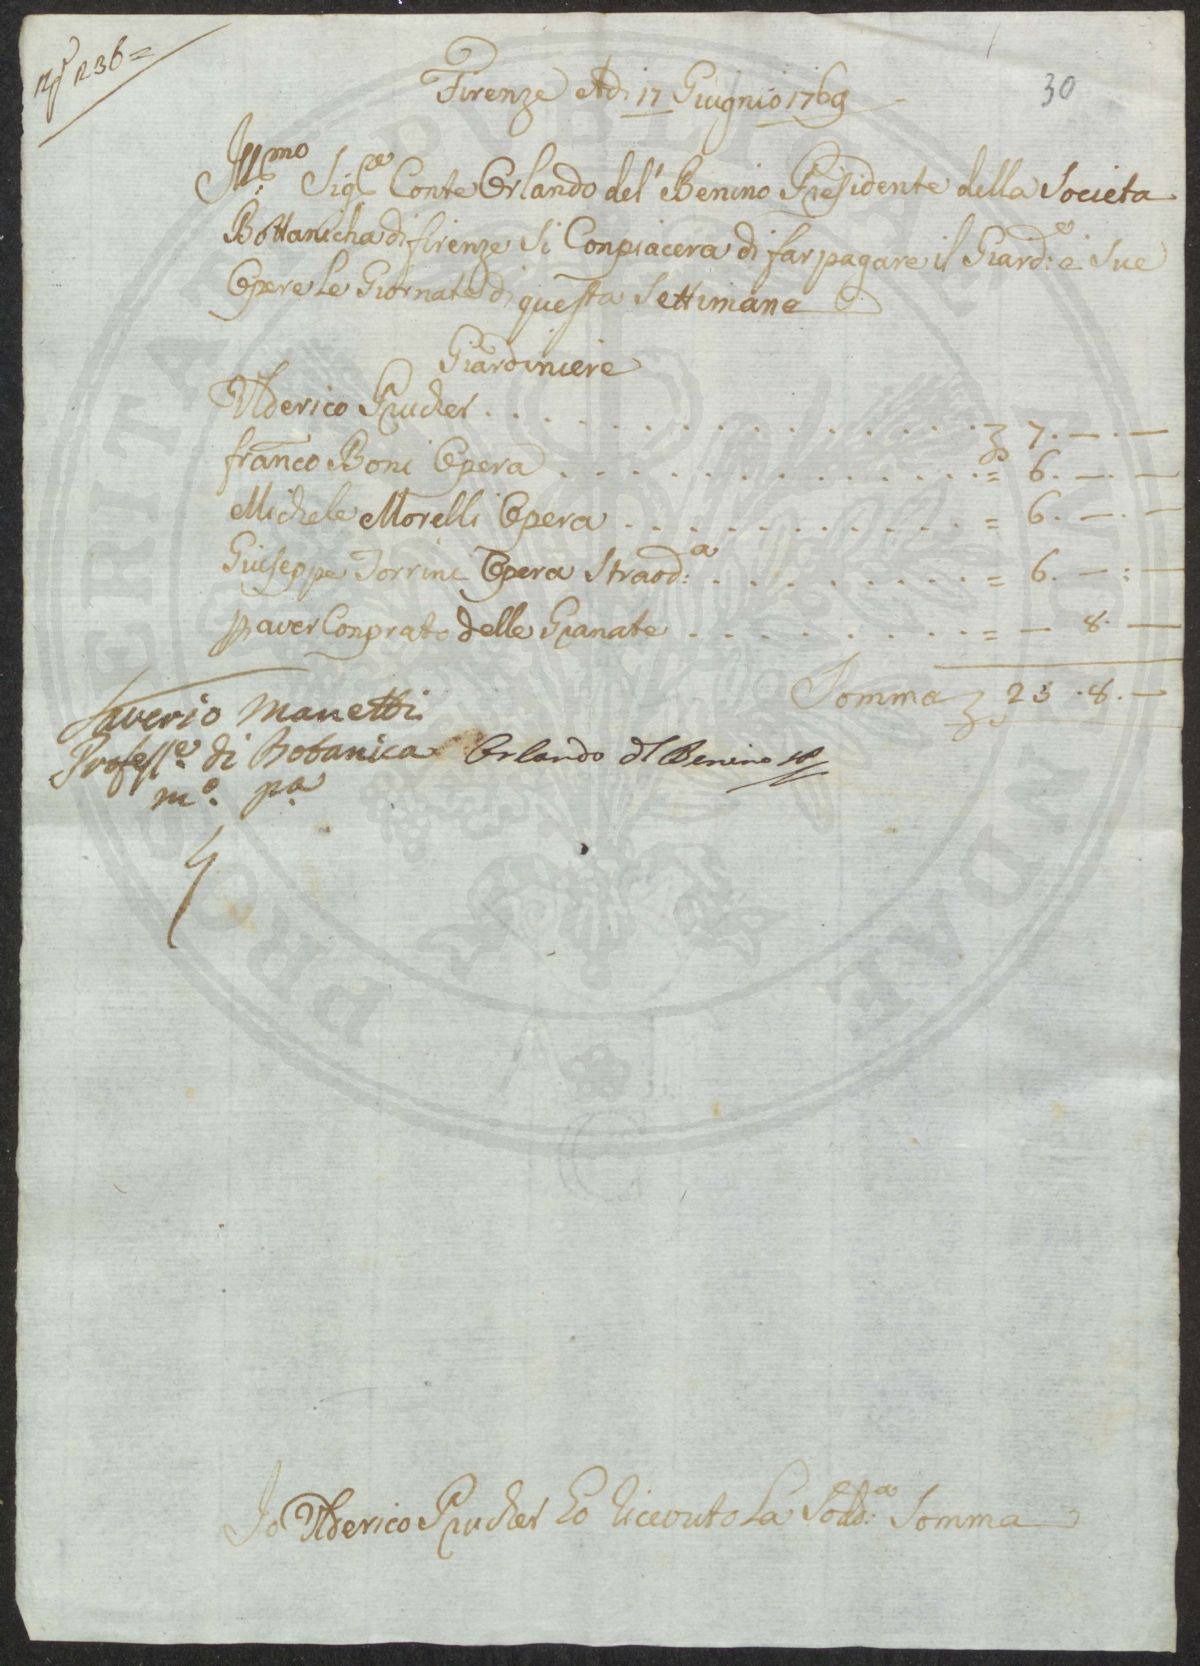 Nº 236=
30
Firenze Adi 17 Giugnio 1769
Ill.mo Sig.re Conte Orlando del' Benino Presidente della Societa
Bottanicha di firenze Si Conpiacera di far pagare il Giard:e e Sue
Opere Le Giornate di questa Settimana
Giardiniere
Ulderico Prucher . . . . . . . . . . . £ 7. — . —
franco Boni Opera . . . . . . . . . . . = 6. — . —
Michele Morelli Opera . . . . . . . . . . = 6. — . —
Giuseppe Torrini Opera Straod:a . . . . . . . . = 6. — : —
p aver Conprato delle Granate . . . . . . . . = — 8. —
Somma £ 25 . 8. —
Saverio Manetti
Profess.e di Botanica Orlando dl Benino
m.o p.a
Io Ulderico Prucher Ho Ricevuto La Sodd:a Somma
PROSPERITATI PUBLICAE AUGENDAE